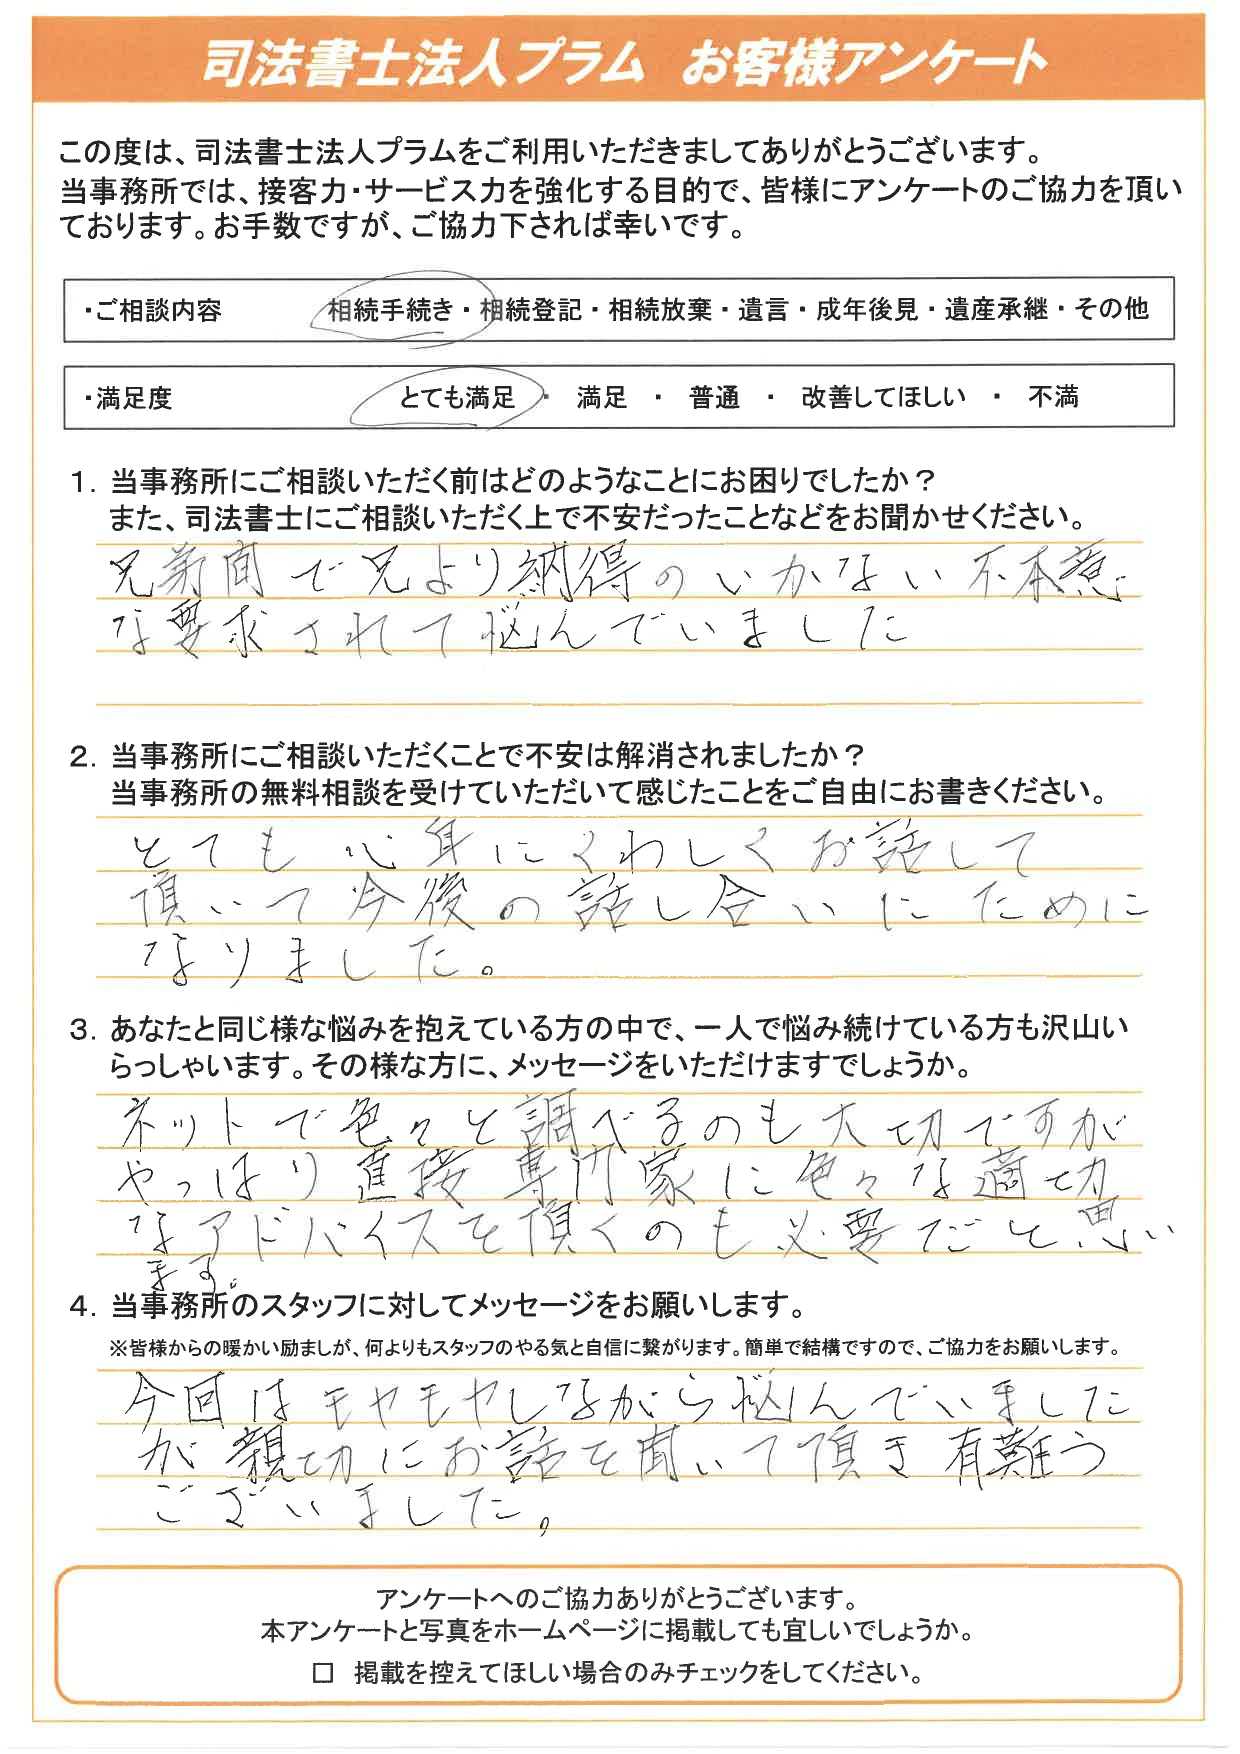 司法書士法人プラム お客様アンケート
この度は、司法書士法人プラムをご利用いただきましてありがとうございます。
当事務所では、接客力・サービス力を強化する目的で、皆様にアンケートのご協力を頂い
ております。お手数ですが、ご協力下されば幸いです。
・ご相談内容 相続手続き・相続登記・相続放棄・遺言・成年後見・遺産承継・その他
・満足度 とても満足 ・ 満足 ・ 普通 ・ 改善してほしい ・ 不満
1. 当事務所にご相談いただく前はどのようなことにお困りでしたか？
また、司法書士にご相談いただく上で不安だったことなどをお聞かせください。
兄弟間で兄より納得のいかない不本意
な要求されて悩んでいました
2. 当事務所にご相談いただくことで不安は解消されましたか？
当事務所の無料相談を受けていただいて感じたことをご自由にお書きください。
とても心身にくわしくお話して
頂いて今後の話し合いにために
なりました。
3. あなたと同じ様な悩みを抱えている方の中で、一人で悩み続けている方も沢山い
らっしゃいます。その様な方に、メッセージをいただけますでしょうか。
ネットで色々と調べるのも大切ですが
やっはり直接専門家に色々な適切
なアドバイスを頂くのも必要だと思い
ます。
4. 当事務所のスタッフに対してメッセージをお願いします。
※皆様からの暖かい励ましが、何よりもスタッフのやる気と自信に繋がります。簡単で結構ですので、ご協力をお願いします。
今回はモヤモヤしながら悩んでいました
が親切にお話を聞いて頂き有難う
ございました。
アンケートへのご協力ありがとうございます。
本アンケートと写真をホームページに掲載しても宜しいでしょうか。
□ 掲載を控えてほしい場合のみチェックをしてください。